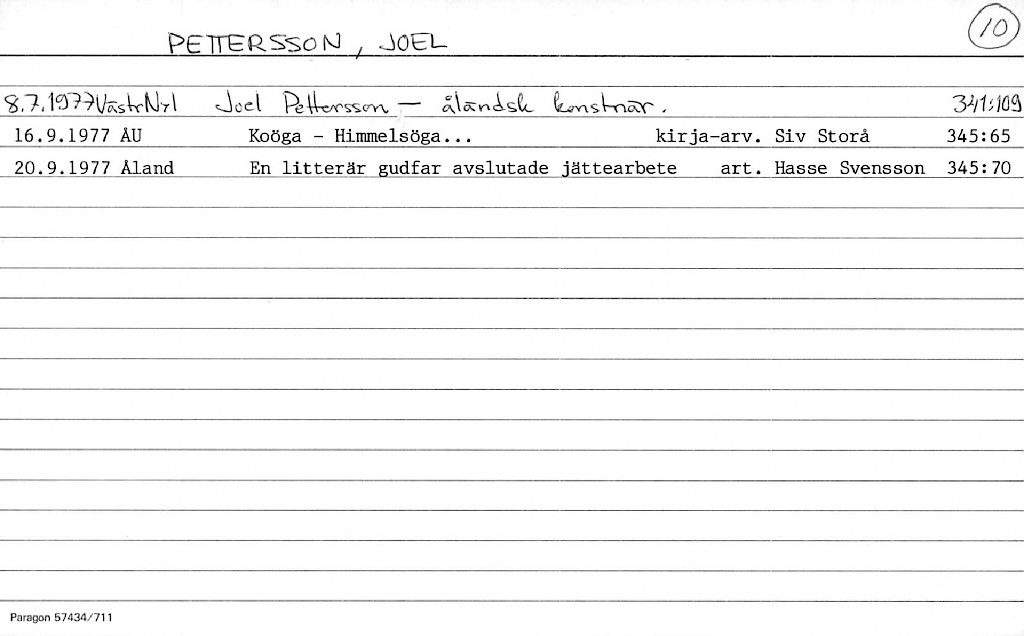 PETTERSSON, JOEL 10
8.7.1977 VästrNyl Joel Pettersson — åländsk konstnär. 341:109
16.9.1977 ÅU Koöga - Himmelsöga... kirja-arv. Siv Storå 345:65
20.9.1977 Åland En litterär gudfar avslutade jättearbete art. Hasse Svensson 345:70
Paragon 57434/711